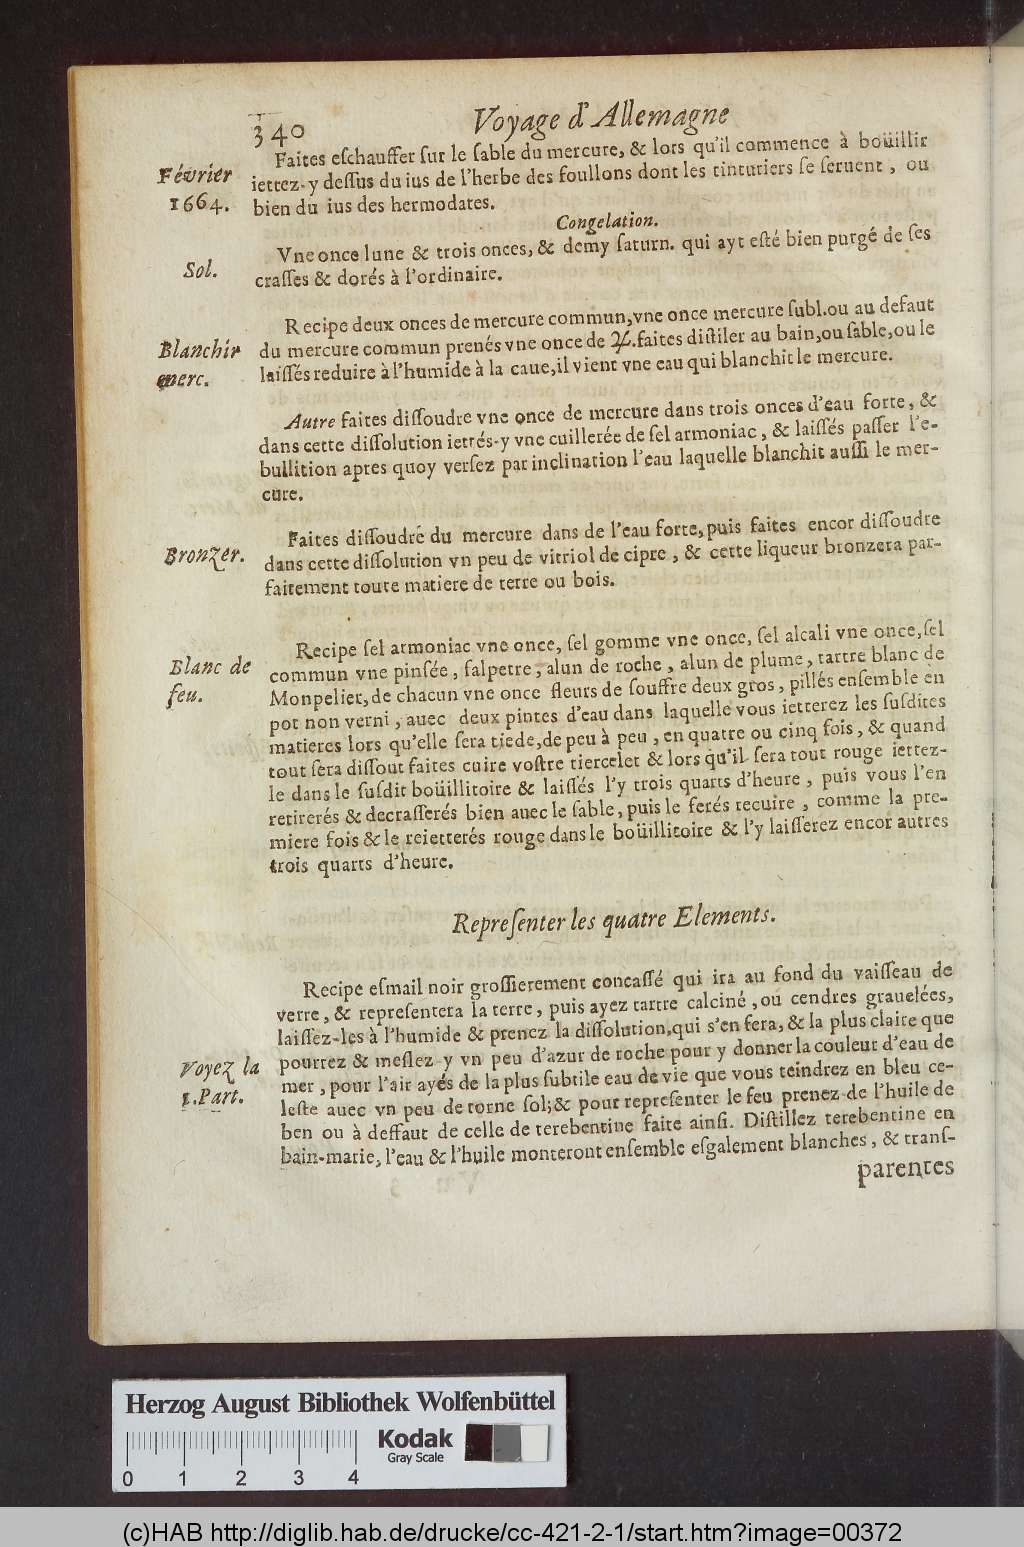 340
Voyage d'Allemagne
Février
1664.
Faites eſchauffer ſur le ſable du mercure, & lors qu'il commence à boüillir
iettez-y deſſus du ius de l'herbe des foullons dont les tinturiers ſe ſeruent, ou
bien du ius des hermodates.
Congelation.
Sol.
Vne once lune & trois onces, & demy ſaturn. qui ayt eſté bien purgé de ſes
craſſes & dorés à l'ordinaire.
Blanchir
merc.
Recipe deux onces de mercure commun, vne once mercure ſubl. ou au defaut
du mercure commun prenés vne once de ♃. faites diſtiler au bain, ou ſable, ou le
laiſſés reduire à l'humide à la caue, il vient vne eau qui blanchit le mercure.
Autre faites diſſoudre vne once de mercure dans trois onces d'eau forte, &
dans cette diſſolution iettés-y vne cuillerée de ſel armoniac, & laiſſés paſſer l'e-
bullition apres quoy verſez par inclination l'eau laquelle blanchit auſſi le mer-
cure.
Bronzer.
Faites diſſoudre du mercure dans de l'eau forte, puis faites encor diſſoudre
dans cette diſſolution vn peu de vitriol de cipre, & cette liqueur bronzera par-
faitement toute matiere de terre ou bois.
Blanc de
feu.
Recipe ſel armoniac vne once, ſel gomme vne once, ſel alcali vne once, ſel
commun vne pinſée, ſalpetre, alun de roche, alun de plume, tartre blanc de
Monpelier, de chacun vne once fleurs de ſouffre deux gros, pillés enſemble en
pot non verni, auec deux pintes d'eau dans laquelle vous ietterez les ſuſdites
matieres lors qu'elle ſera tiede, de peu à peu, en quatre ou cinq fois, & quand
tout ſera diſſout faites cuire voſtre tiercelet & lors qu'il ſera tout rouge iettez-
le dans le ſuſdit boüillitoire & laiſſés l'y trois quarts d'heure, puis vous l'en
retirerés & decraſſerés bien auec le ſable, puis le ferés recuire, comme la pre-
miere fois & le reietterés rouge dans le boüillitoire & l'y laiſſerez encor autres
trois quarts d'heure.
Repreſenter les quatre Elements.
Recipe eſmail noir groſſierement concaſſé qui ira au fond du vaiſſeau de
verre, & repreſentera la terre, puis ayez tartre calciné, ou cendres grauelées,
laiſſez-les à l'humide & prenez la diſſolution, qui s'en fera, & la plus claire que
Voyez la
1. Part.
pourrez & meſlez-y vn peu d'azur de roche pour y donner la couleur d'eau de
mer, pour l'air ayés de la plus ſubtile eau de vie que vous teindrez en bleu ce-
leſte auec vn peu de torne ſol; & pour repreſenter le feu prenez de l'huile de
ben ou à deffaut de celle de terebentine faite ainſi. Diſtillez terebentine en
bain-marie, l'eau & l'huile monteront enſemble eſgalement blanches, & tranſ-
parentes
Herzog August Bibliothek Wolfenbüttel
Kodak
Gray Scale
0 1 2 3 4
(c)HAB http://diglib.hab.de/drucke/cc-421-2-1/start.htm?image=00372